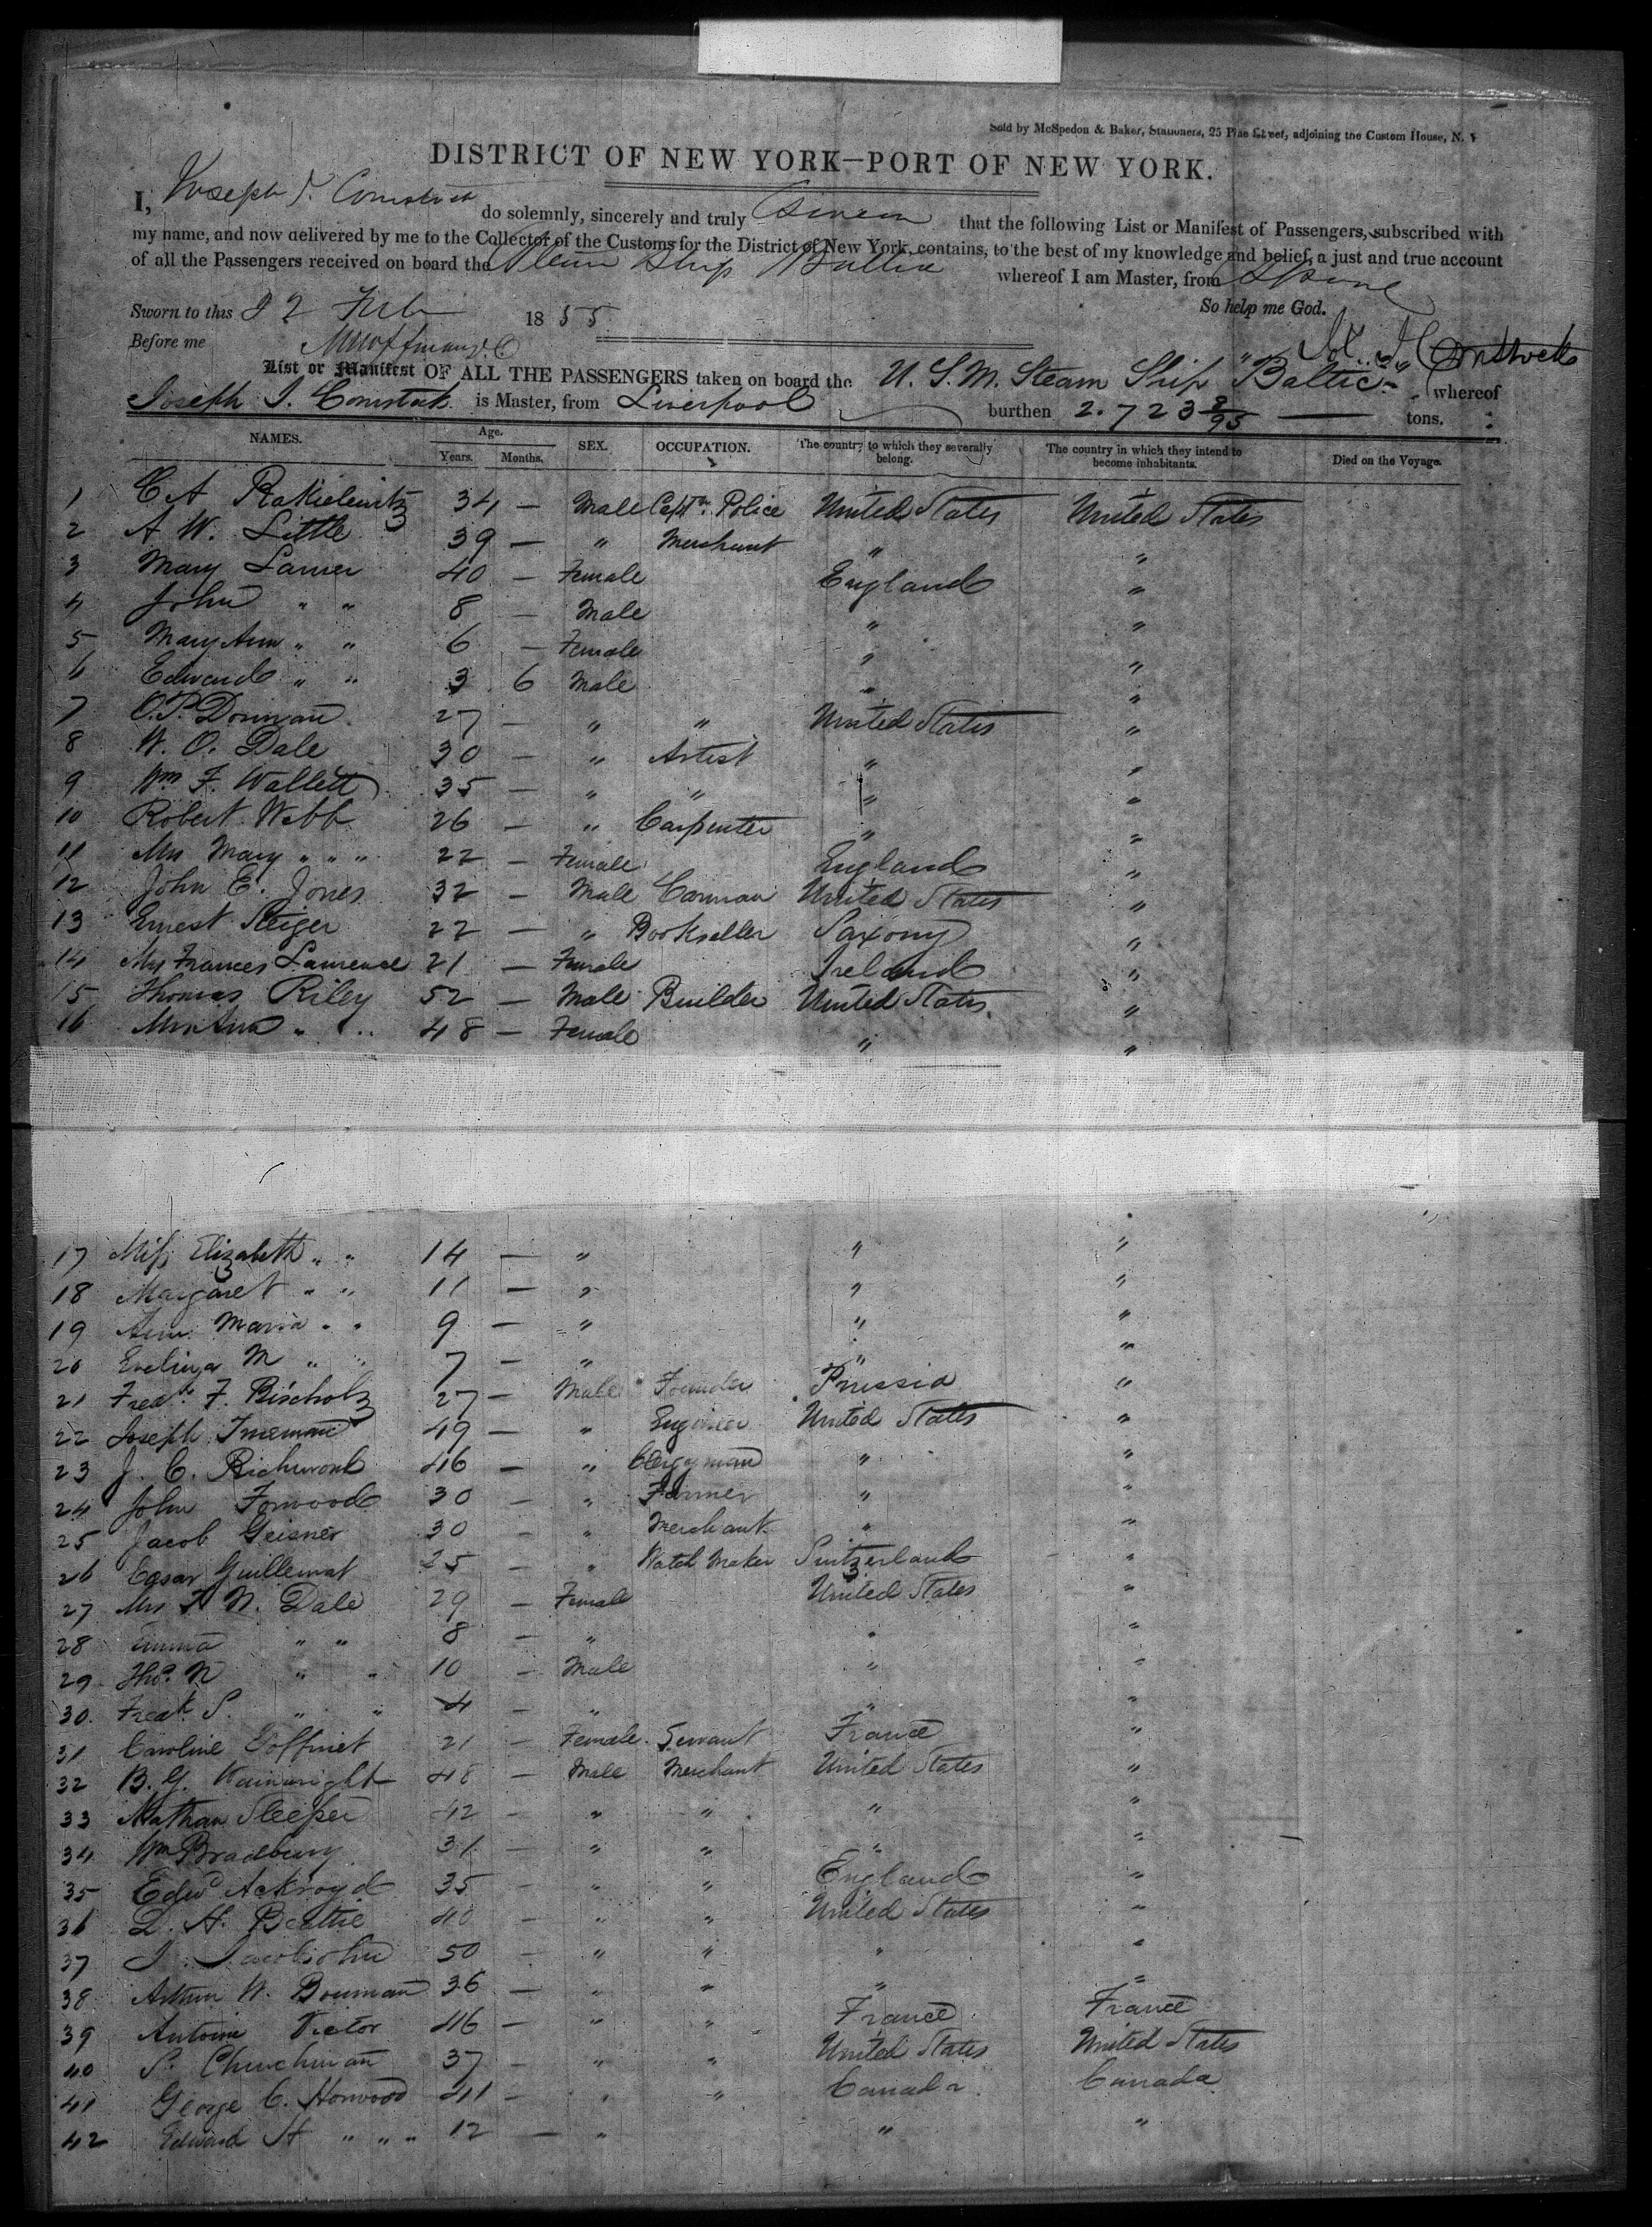 Sold by McSpedon & Baker, Stationers, 25 Pine Street, adjoining the Custom House, N. Y
DISTRICT OF NEW YORK—PORT OF NEW YORK.
I, Joseph J. Comstock do solemnly, sincerely and truly Swear that the following List or Manifest of Passengers, subscribed with
my name, and now delivered by me to the Collector of the Customs for the District of New York, contains, to the best of my knowledge and belief, a just and true account
of all the Passengers received on board the Steam Ship Baltic whereof I am Master, from
So help me God.
Sworn to this 22 Feb 1855
Before me
Jos. J. Comstock
List or Manifest OF ALL THE PASSENGERS taken on board the U. S. M. Steam Ship "Baltic" whereof
Joseph J. Comstock is Master, from Liverpool burthen 2.723 8/95 tons.
NAMES. Age. Years. Months. SEX. OCCUPATION. The country to which they severally belong. The country in which they intend to become inhabitants. Died on the Voyage.
1 C A Rakielewitz 34 — Male Captn. Police United States United States
2 A W. Little 39 — " Merchant " "
3 Mary 40 — Female England "
4 John " " 8 — Male " "
5 Mary Ann " " 6 — Female " "
6 Edward " " 3 6 Male " "
7 O. P. Dorman 27 — " " United States "
8 W. O. Dale 30 — " Artist " "
9 Wm F. Wallett 35 — " " " "
10 Robert Webb 26 — " Carpenter " "
11 Mrs Mary " " " 22 — Female England "
12 John E. Jones 32 — Male Carman United States "
13 Ernest Steiger 22 — " Bookseller Saxony "
14 Frances Laurence 21 — Female Ireland "
15 Thomas Riley 52 — Male Builder United States "
16 Mrs Ann " " 48 — Female " "
17 Miss Elizabeth " " 14 — " " "
18 Margaret " " 11 — " " "
19 Ann Maria " " 9 — " " "
20 Evelina M " " 7 — " " "
21 Fredk. F. Bischolz 27 — Male Founder Prussia "
22 Joseph 49 — " Engineer United States "
23 J. C. Richmond 46 — " Clergyman " "
24 John Forwood 30 — " Farmer " "
25 Jacob Geisner 30 — " Merchant " "
26 Cesar Guillemat 25 — " Watch Maker Switzerland "
27 Mrs N. Dale 29 — Female United States "
28 Emma " " 8 — " " "
29 Thos. N " " 10 — Male " "
30 Fredk. S. " " 4 — " " "
31 Caroline Goffinet 21 — Female Servant France "
32 B. G. Wainwright 48 — Male Merchant United States "
33 Nathan Sleeper 42 — " " " "
34 Wm Bradbury 31 — " " " "
35 Edwd Ackroyd 35 — " " England "
36 L. H. Beattie 40 — " " United States "
37 J. Jacobsohn 50 — " " " "
38 Arthur W. Bowman 36 — " " " "
39 Antoine Victor 46 — " " France France
40 S. Churchman 37 — " " United States United States
41 George C. Horwood 41 — " " Canada Canada
42 Edward H " " " 12 — " " "